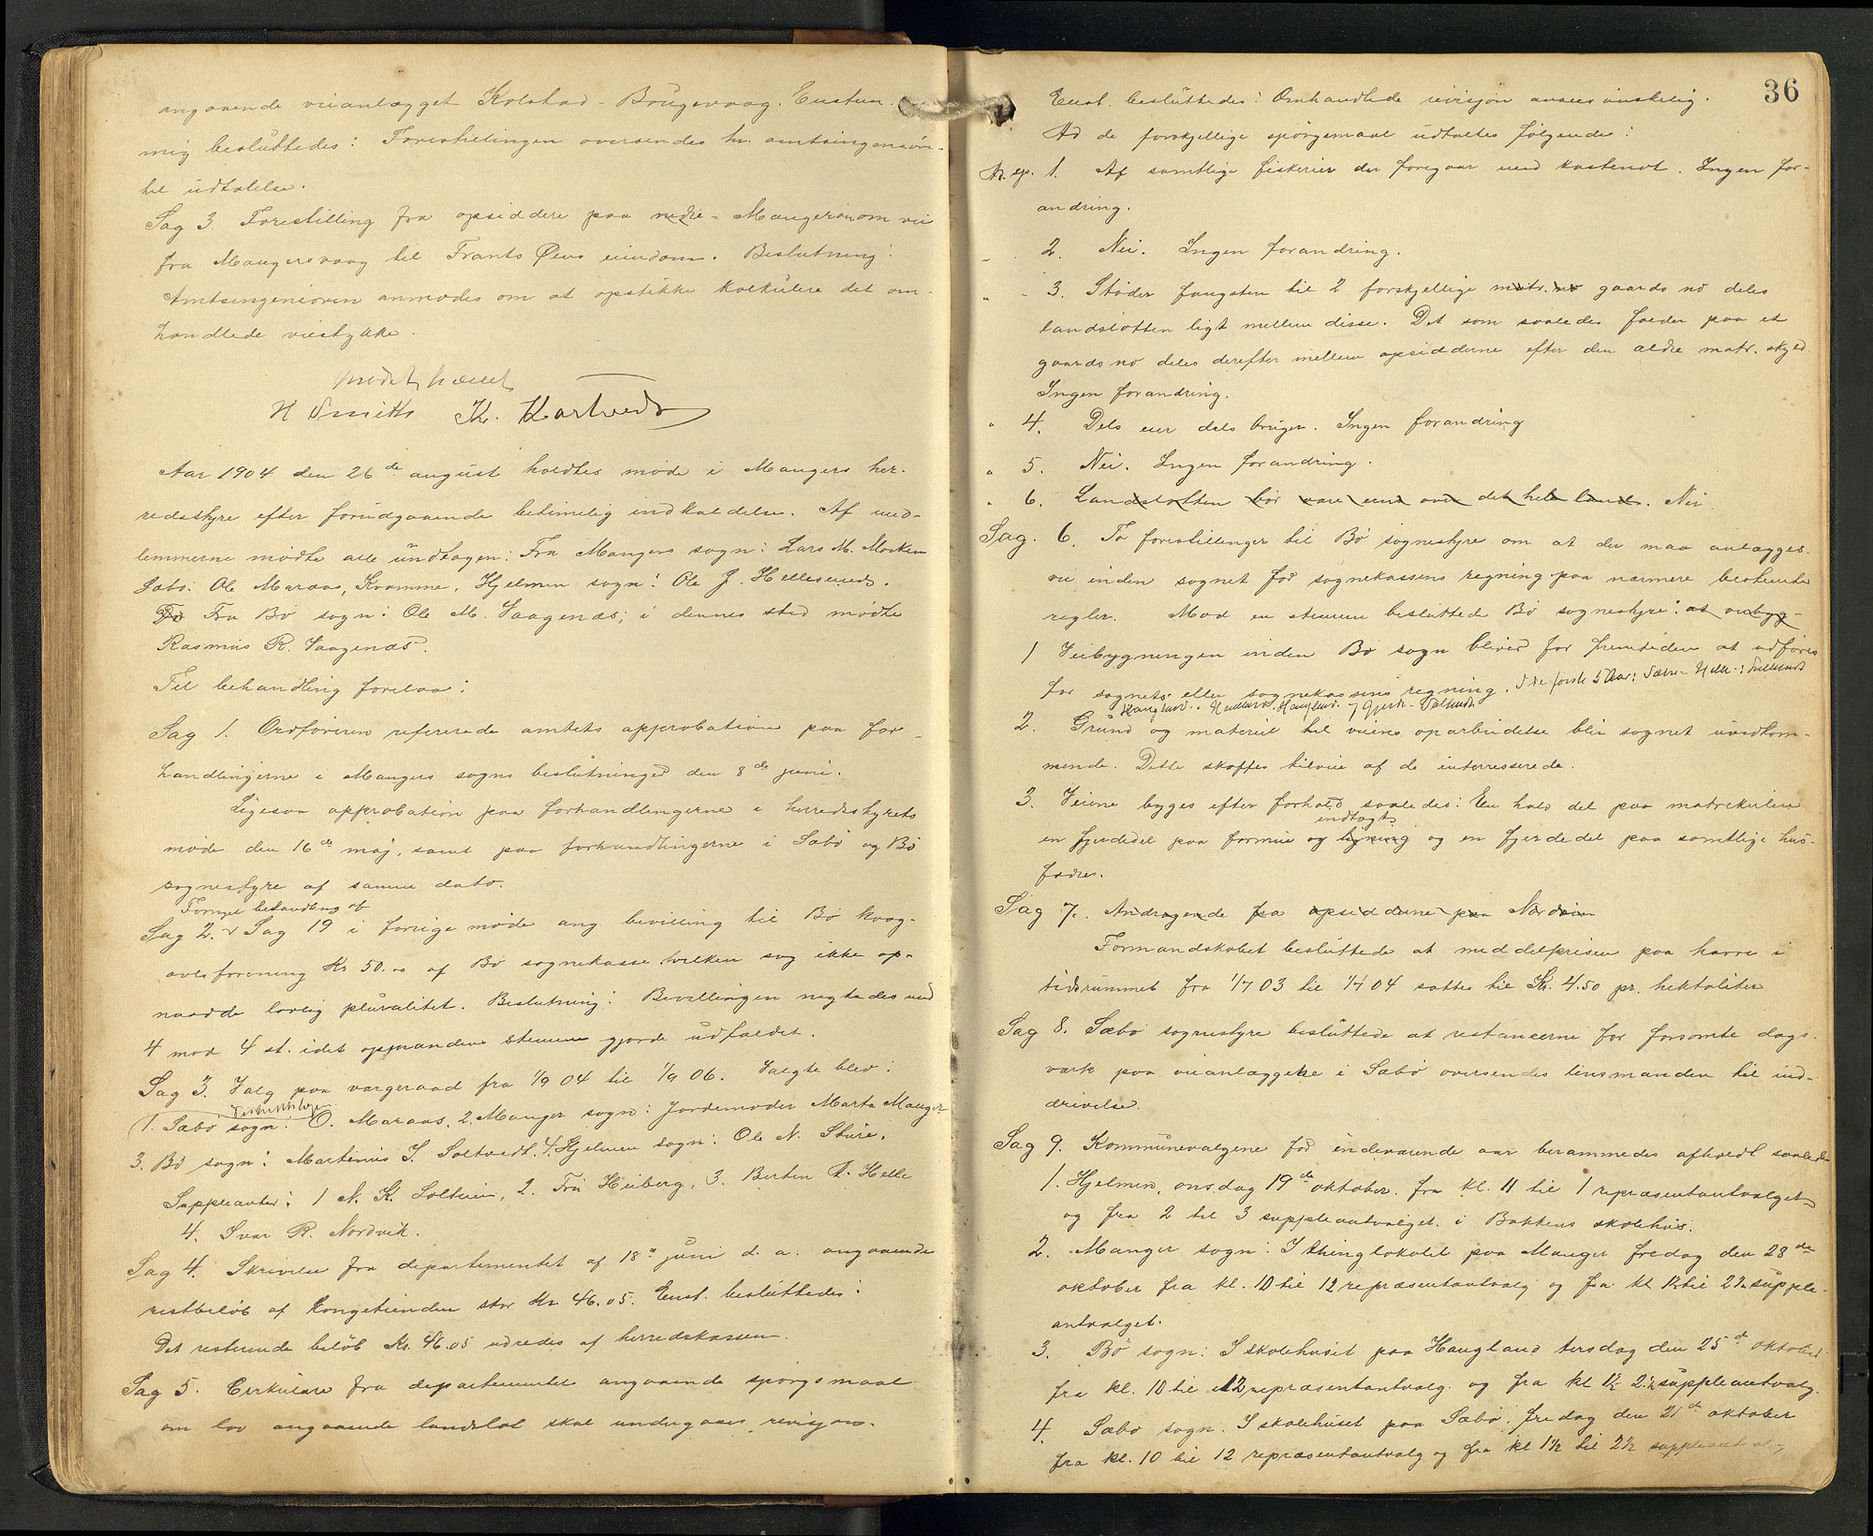 angaaende veianlægget Kolstad - Böugevaag. Enstem-
mig beslüttedes: Forestillingen oversendes hr. amtsingeniör-
til üdtalelse.
Sag 3. Forestilling fra opsiddere paa nedre - Mangerönom vei
fra Mangersvaag til Frants Øens eiendom. Beslutning:
Amtsingeniören anmodes om at opstikke kalkülere det om-
handlede veistykke.
mödet hævet
H Smith K. Kartveit
Aar 1904 den 26de august holdtes möde i Mangers her-
redsstyre efter forüdgaaende betimelig indkaldelse. Af med-
lemmerne mödte alle ündtagen: Fra Mangers sogn: Lars M. Morken
Sæbö: Ole Maraas, Kvamme, Hjelmen sogn: Ole J. Hellesund.
Fra Bö sogn: Ole M. Vaagenæs; i dennes sted mödte
Rasmus R. Vaagenæs.
Til behandling forelaa:
Sag 1. Ordföreren refererede amtets approbation paa for-
handlingerne i Mangers sogns beslutninger den 8de juni.
Ligesaa approbation paa forhandlingerne i herredsstyrets
möde den 16de maj, samt paa forhandlingerne i Sæbö og Bö
sognestyre af samme dato.
Fornyet behandling af
Sag 2. Sag 19 i forrige möde ang bevilling til Bö kvæg-
avlsforening Kr 50.00 af Bö sognekasse hvilken sag ikke op-
naadde lovlig plüralitet. Beslutning: Bevillingen negtedes med
4 mod 4 st. idet opmandens stemme gjorde üdfaldet.
Sag 3. Valg paa vergeraad fra 1/9 04 til 1/9 06. Valgte blev:
1. Sæbö sogn: O. Maraas, 2. Manger sogn: Jordemoder Marta Manger
3. Bö sogn: Martinüs J. Soltvedt. 4. Hjelmen sogn: Ole N. Stüre.
Süppleanter: 1 N. K. Solheim, 2. Frü Heiberg, 3. Berten A. Helle
4. Ivar R. Nordvik.
Sag 4. Skrivelse fra departementet af 18de jüni d. a. angaaende
restbelöb af Kongetienden stor Kr. 46.05. Enst. beslüttedes:
Det resterende belöb Kr. 46.05 udredes af herredskassen.
Sag 5. Cirkülære fra departementet angaaende spörgsmaal
om lov angaaende landslot skal undergaaes revisjon.
36
Enst. beslüttedes: Omhandlede revisjon ansees önskelig.
Ad de forskjellige spörgsmaal üdtaltes fölgende:
1. Af samtlige fiskerier der foregaar med kastenot. Ingen for-
andring.
2. Nei. Ingen forandring.
3. Stöder fangsten til 2 forskjellige matr. no gaards no deles
landslotten ligt mellem disse. Det som saaledes falder paa et
gaards no deles derefter mellem opsidderne efter den ældre matr. skyld.
Ingen forandring.
4. Dels eier dels brüger. Ingen forandring
5. Nei. Ingen forandring.
6. Landslotten bör være ens over det hele land. Nei.
Sag. 6. To forestillinger til Bö sognestyre om at der maa anlægges
vei inden sognet for sognekassens regning paa nærmere bestemte
regler. Mod en stemme beslüttede Bö sognestyre: at veibyg-
1 Veibygningen inden Bö sogn bliver for fremtiden at udföres
for sognets eller sognekassens regning. I de förste 5 Aar:
2. Gründ og materiel til veiens oparbeidelse blir sognet üvedkom-
mende. Dette skaffes tilveie af de interesserede.
3. Veiene bygges efter forhold saaledes: En halv del paa matrikülen
indtægt
en fjerdedel paa formüe og ligning og en fjerdedel paa samtlige hüs-
fædre.
Sag 7. Andragende fra opsidderne paa Nordöen
Formandskabet beslüttede at middelprisen paa havre i
tidsrümmet fra 1/7 03 til 1/7 04 sættes til Kr. 4.50 pr. hektoliter
Sag 8. Sæbö sognestyre beslüttede at restancerne for forsömte dags-
værk paa veianlæggene i Sæbö oversendes lensmanden til ind-
drivelse.
Sag 9. Kommünevalgene for indeværende aar berammedes afholdt saaledes
1. Hjelmen, onsdag 19de oktober. fra kl. 11 til 1 repræsentantvalget
og fra 2 til 3 suppleantvalget i Bakkens skolehüs.
2. Manger sogn: I thinglokalet paa Manger fredag den 28de
oktober fra kl. 10 til 12 repræsentantvalg og fra kl 1½ til 2½ süpple-
antvalget.
3. Bö sogn: I skolehüset paa Haugland tirsdag den 25de oktober
fra kl. 10 til 12 repræsentantvalg og fra kl 1½ 2½ süppleantvalg.
4. Sæbö sogn. I skolehüset paa Sæbö fredag den 21de oktober
fra kl. 10 til 12 repræsentantvalg og fra kl 1½ til 2½ suppleantvalg